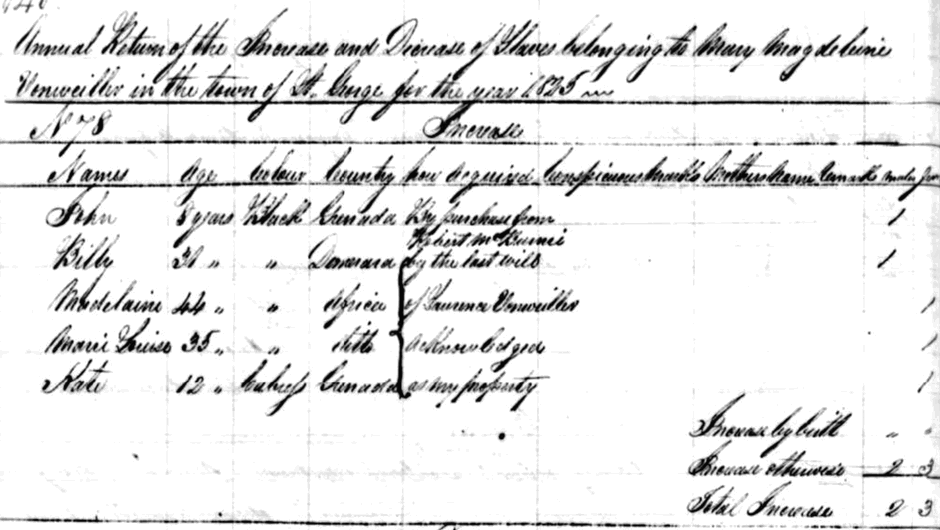 Annual Return of the Increase and Decrease of Slaves belonging to Mary Magdeleine
Vonweiller in the town of St. George for the year 1825
No 78 Increase
Names Age Colour Country how Acquired Conspicuous Marks Mothers Name Remarks males
John 8 years Black Grenada By purchase from 1
Robert
Billy 30 " " Demerara by the last will 1
Madelaine 44 " " Africa of Laurence Vonweiller 1
Marie Louise 35 " " ditto acknowledged 1
Kate 12 " Cabress Grenada as my property 1
Increase by birth " "
Increase otherwise 2 3
Total Increase 2 3